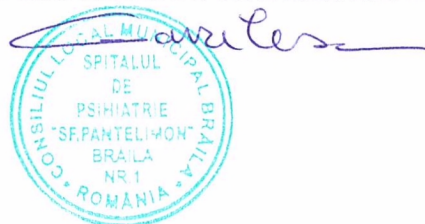 CONSILIUL LOCAL MUNICIPAL BRAILA
SPITALUL
DE
PSIHIATRIE
"SF.PANTELIMON"
BRAILA
NR 1
* ROMÂNIA *